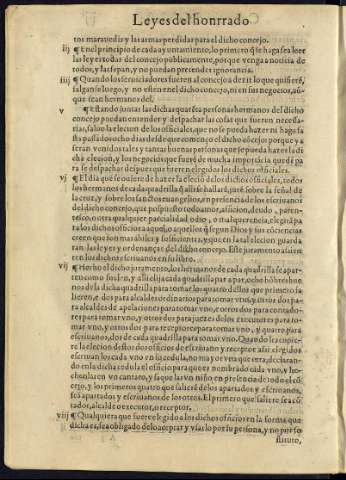 Leyes del honrrado
tos marauedis y las armas perdidas para el dicho concejo.
iij ¶ En el principio de cada ayuntamiento, lo primero q̃ se haga sea leer
las leyes todas del concejo publicamente, porque venga a noticia de
todos, y las sepan, y no puedan pretender ignorancia.
iiij ¶ Quando los seruidores fueren al concejo a dezir lo que quisierẽ,
salgan se luego, y no esten en el dicho concejo, ni en sus negocios, aũ-
que sean hermanos del.
v ¶ Estando juntas las dichas quarẽta personas hermanos del dicho
concejo puedan entender y despachar las cosas que fueren necessa-
rias, saluo la eleccion de los officiales, que no se pueda hazer ni haga fa-
sta passados ocho dias desde que començo el dicho cõcejo porque ya
seran venidos tales y tantas buenas personas que se pueda hazer la di-
cha eleccion, y los negocios que fuerẽ de mucha importãcia quedẽ pa-
ra se despachar despues que fueren elegidos los dichos officiales.
vj ¶ El dia que se ouiere de hazer la eleciõ de los dichos officiales, todos
los hermanos de cada quadrilla q̃ alli se hallarẽ, jurẽ sobre la señal de
la cruz, y sobre los sanctos euangelios, en presencia de los escriuanos
del dicho concejo, que pospuesto todo amor, aficion, deudo, paren-
tesco, o otra qualquier parcialidad odio, o tra qualquiera, elegirã pa-
ra los dichos officios aquel, o aquellos q̃ segun Dios y sus cõciencias
creen que son mas habiles y sufficientes, y que en la tal election guarda-
ran las leyes y ordenanças del dicho concejo. Este juramento assiente
en los dichos escriuanos en su libro.
vij ¶ Hecho el dicho juramento, los hermanos de cada quadrilla se apar-
ten como suelen, y alli elija cada quadrilla por si a par, ocho hõbres bue-
nos de la dicha quadrilla para tomar los quatro dellos que primero sa-
lieren, dos para alcaldes ordinarios para tomar vno, y otros dos pa-
ra alcaldes de apelaciones para tomar vno, e otros dos para contado-
res para tomar vno, y otros dos para juezes de los executores para to-
mar vno, y otros dos para receptores para tomar vno, y quatro para
escriuanos, dos de cada quadrilla para tomar vno. Quando se acabe-
re la elecion destos dos officios de escriuano y receptor assi elegidos
escriuan los cada vno en su cedula, no mayor vna que otra, declaran-
do en la dicha cedula el officio para que es nombrado cada vno, y lo
echen la en vn cantaro, y saque la vn niño en presencia de todo el cõ-
cejo, y los primeros quatro que salieren de los apartados y escriuanos,
sea apartados y escriuanos de los otros. El primero que saliere sea cõ-
tador, alcalde o executor, o receptor.
viij ¶ Qualquiera que fuere elegido a los dichos officios en la forma que
dicha es, sea obligado de lo aceptar y vsarlo por su persona, y no por so-
stituto,